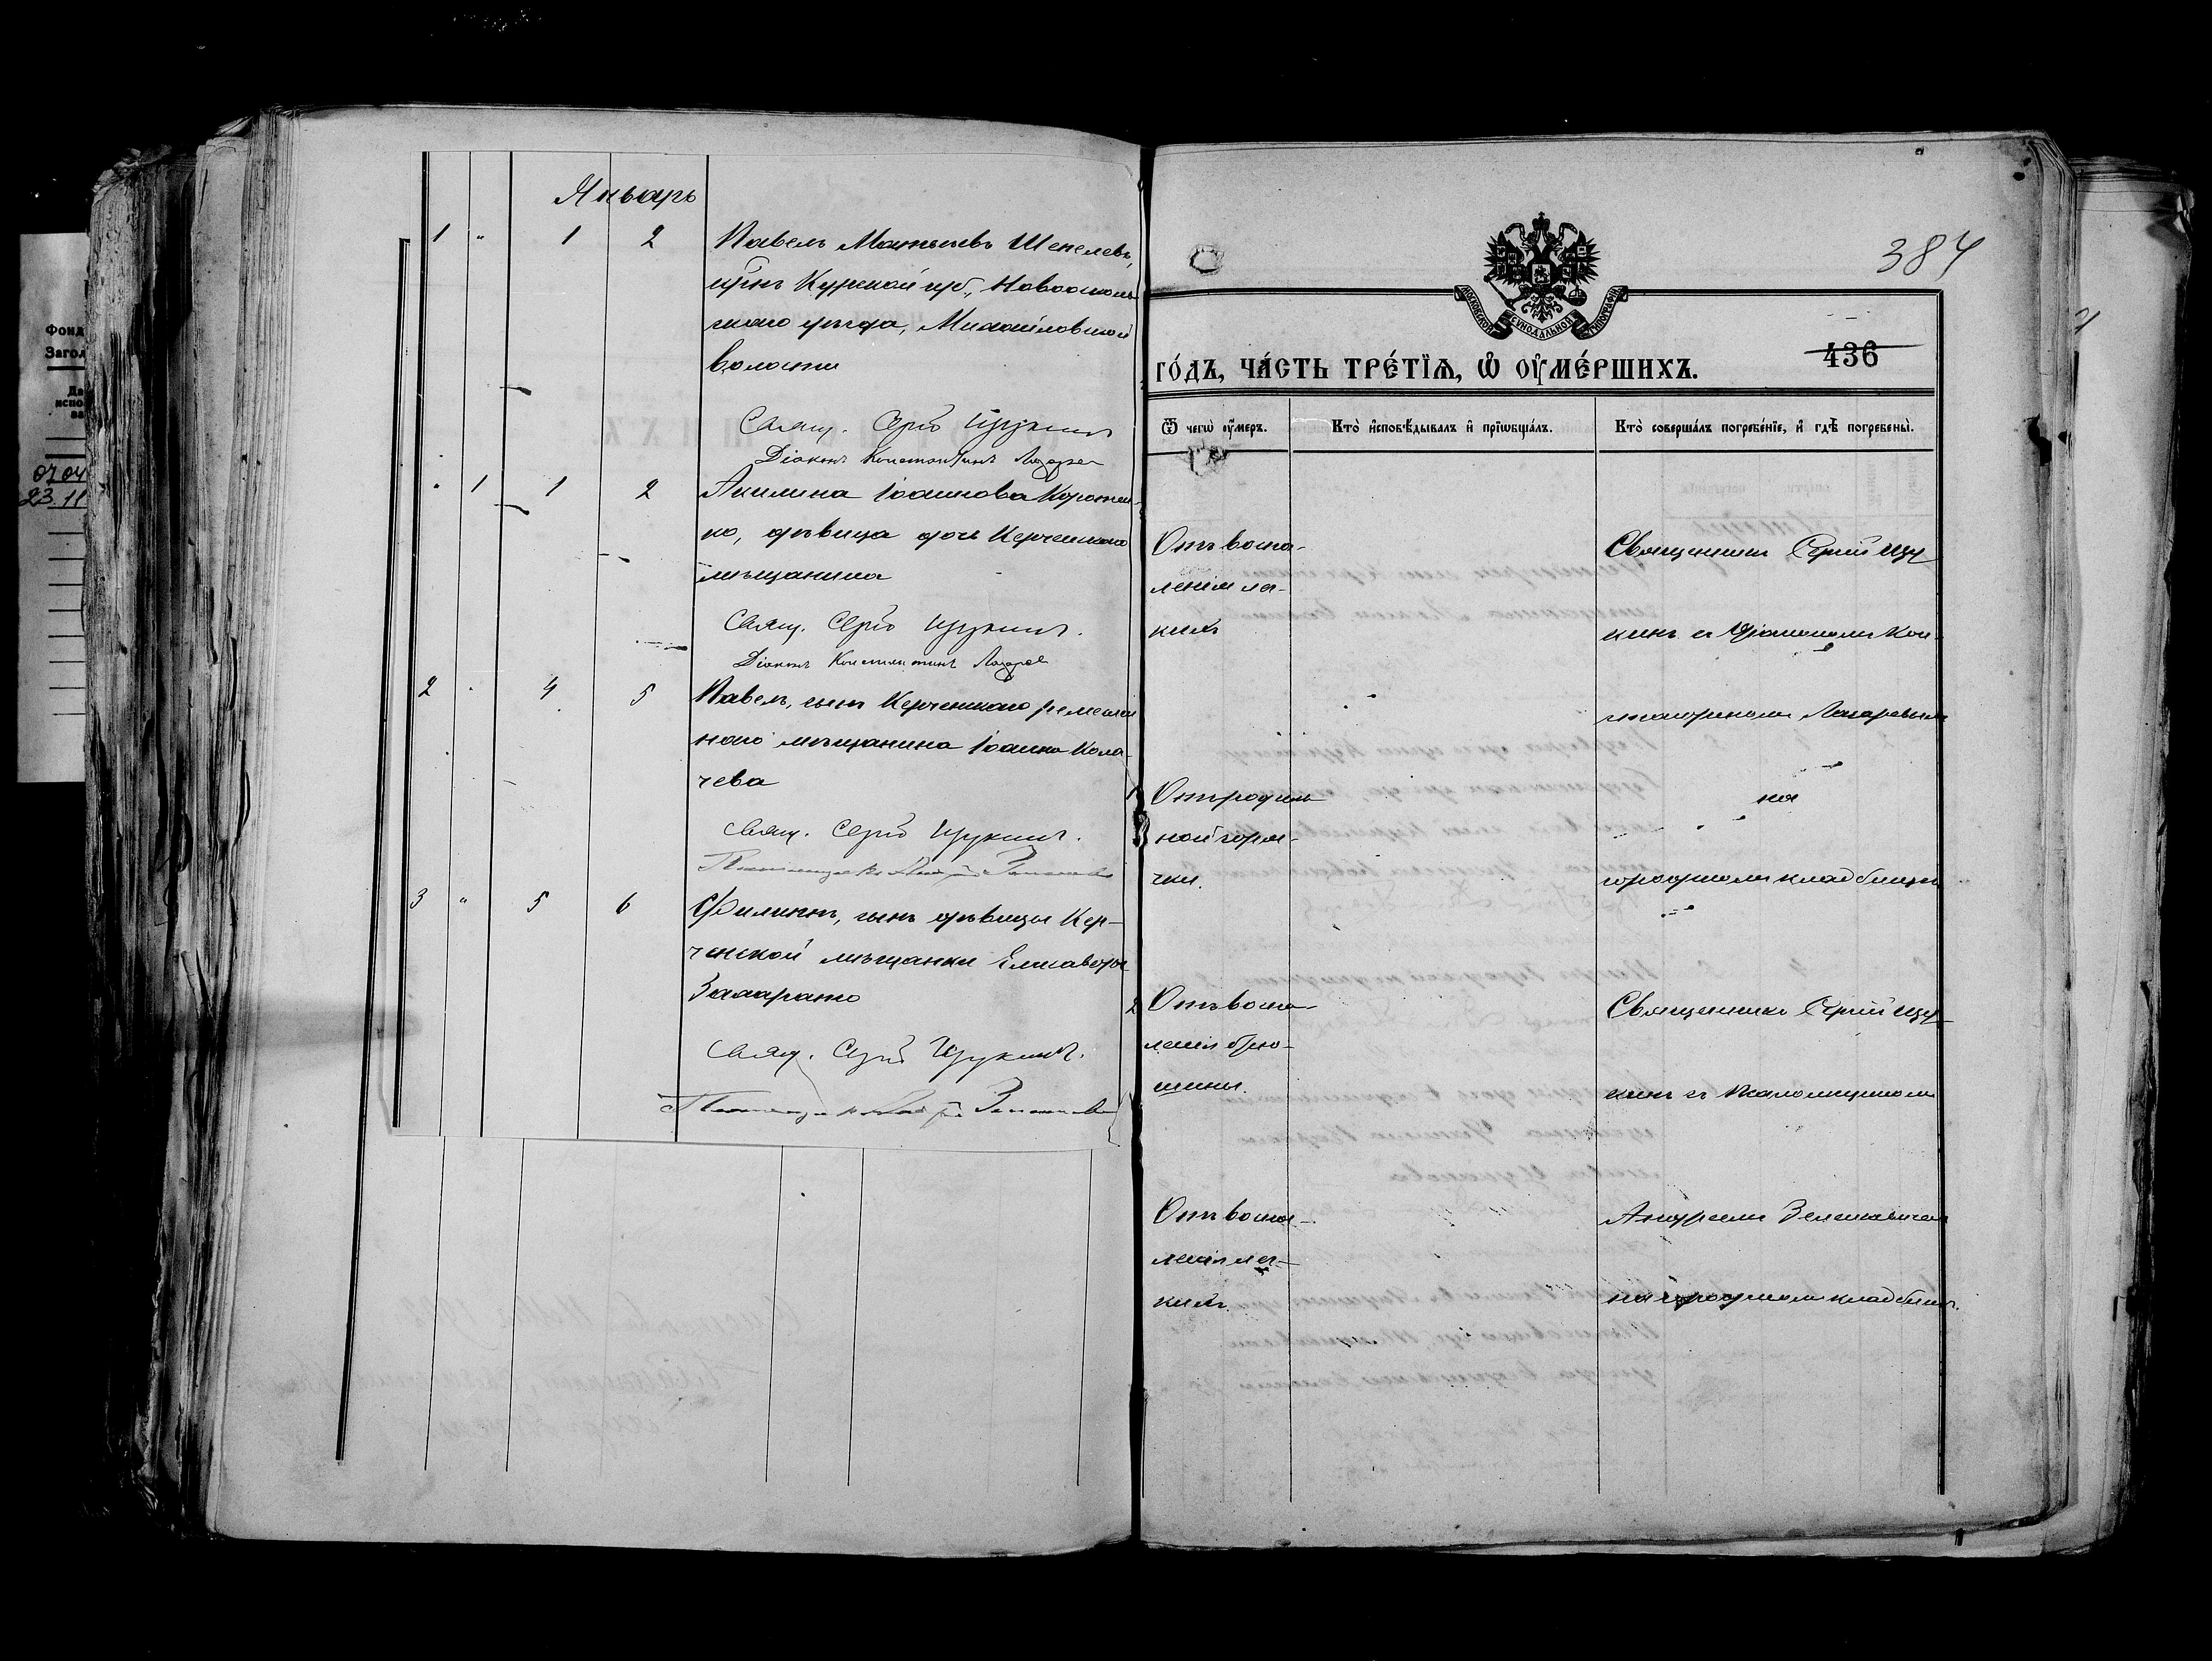 Январь
1 " 1 2 Павелъ Матвѣевъ Шепелевъ,
кр-нъ Курской губ., Новоосколь-
скаго уѣзда, Михайловской
волости
Свящ. Сергій Щукинъ
Діаконъ Константинъ Лазарев
" 1 1 2 Акилина Іоаннова Коротен-
ко, дѣвица дочь Керченскаго
мѣщанина
Свящ. Сергій Щукинъ.
Діаконъ Константинъ Лазарев
2 " 4 5 Павелъ, сынъ Керченскаго ремеслен
наго мѣщанина Іоанна Кола-
чева
Свящ. Сергій Щукинъ.
Псаломщикъ Андрей
3 " 5 6 Филиппъ, сынъ дѣвицы Кер-
ченской мѣщанки Елисаветы
Свящ. Сергій Щукинъ.
Псаломщикъ Андрей
Фонд
Загол
Да
испо
ва
07 04
23.11
МОСКОВСКОЙ СѴНОДАЛЬНОЙ ТИПОГРАФІИ
384
436
го́дъ, ча́сть тре́тїѧ, ѡ҆ ᲂу҆ме́ршихъ.
Ѿ чегѡ̀ ᲂу҆́меръ.
Кто̀ и҆сповѣ́дывалъ и҆ прїѡбща́лъ.
Кто̀ соверша́лъ погребе́нїе, и҆ гдѣ̀ погребены̀.
Отъ воспа-
ленія лег-
кихъ
Священникъ Сергій Щу
кинъ съ Діакономъ Кон-
стантиномъ Лазаревымъ
на
городскомъ кладбищѣ
1 Отъ родиль
ной горя-
чки.
2 Отъ воспа-
ленія брю-
шины.
Священникъ Сергій Щу-
кинъ съ Псаломщикомъ
Отъ воспа-
ленія лег-
кихъ.
Андреемъ
на городскомъ кладбищѣ.